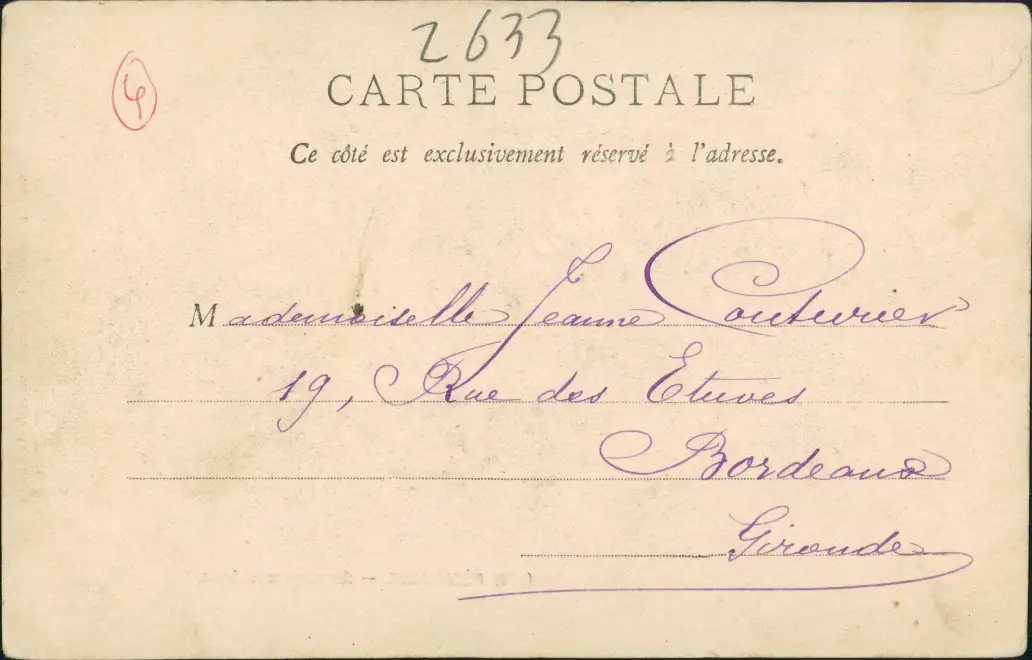 2633
4
CARTE POSTALE
Ce côté est exclusivement réservé à l'adresse.
Mademoiselle Jeanne Couturier
19, Rue des Etuves
Bordeaux
Gironde